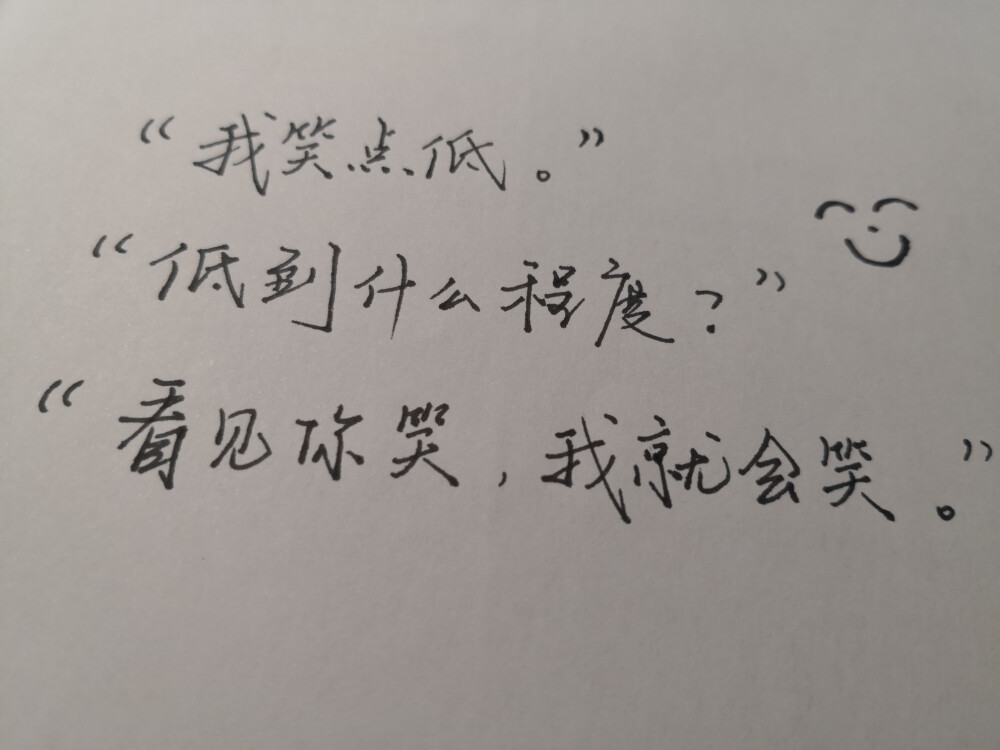 “我笑点低。”
“低到什么程度？”
“看见你笑，我就会笑。”